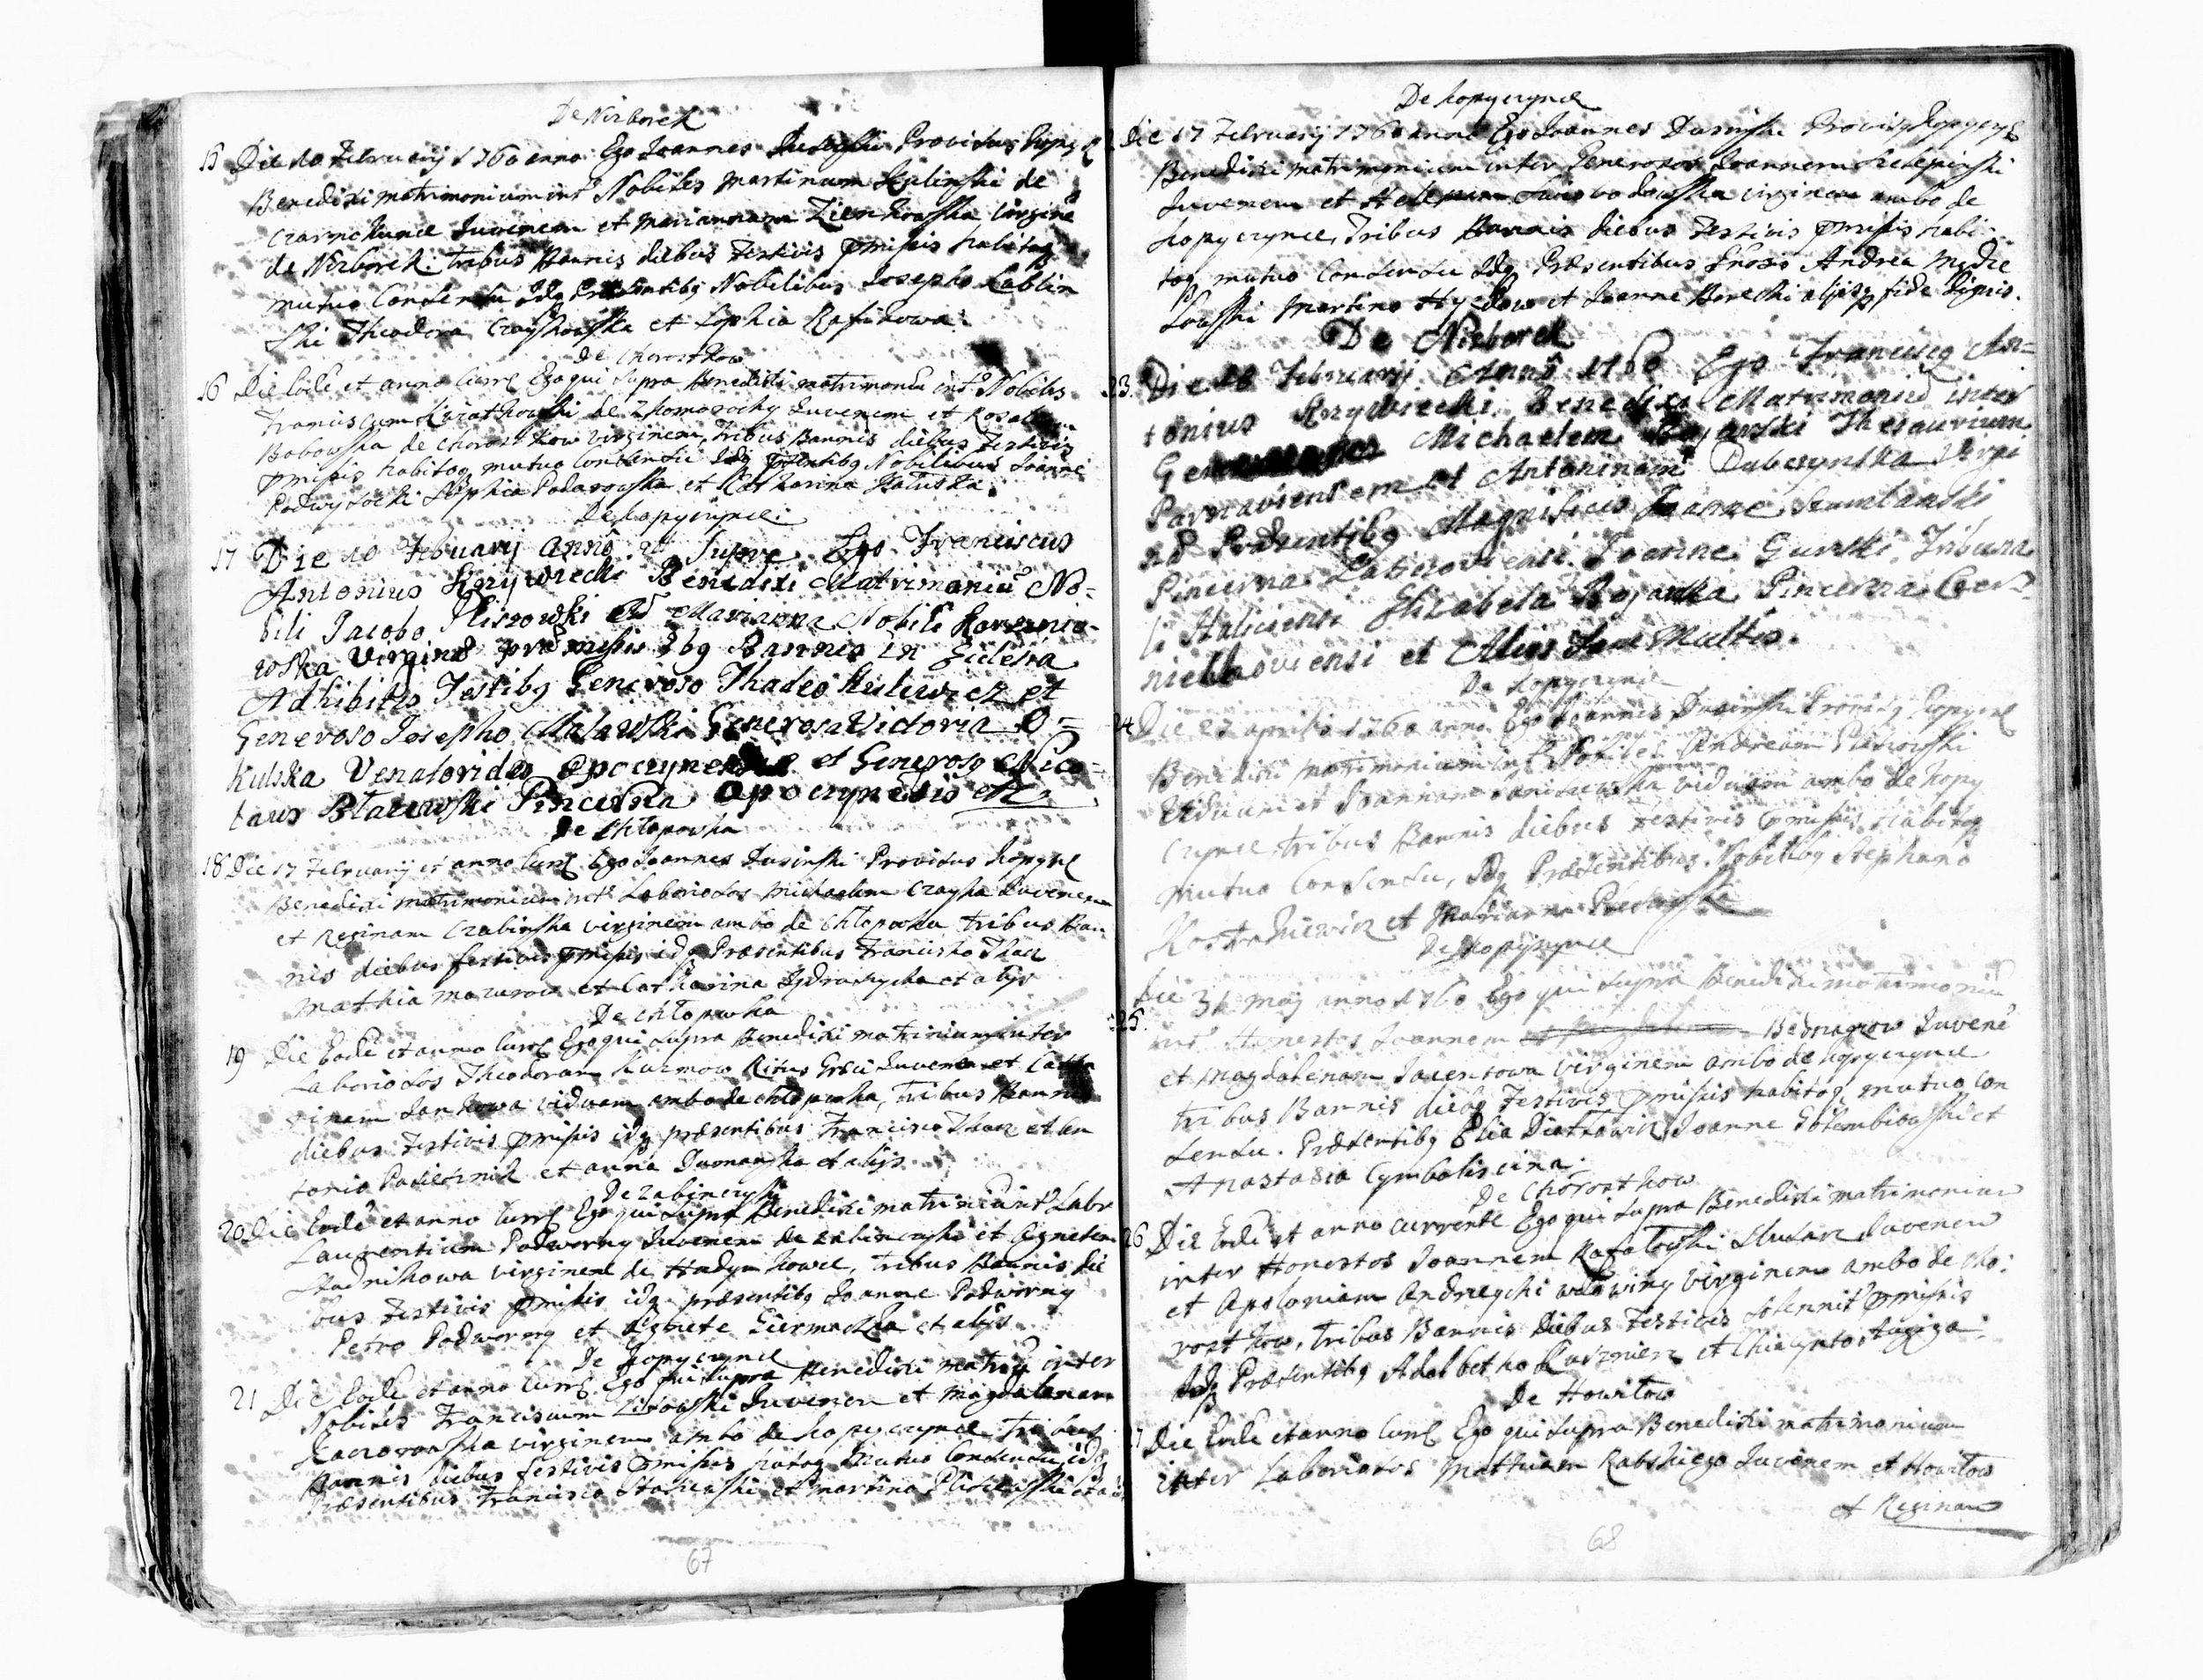 De Nizborek
15 Die 10 February 1760 anno Ego Joannes Dusinski Provisus Kopyc
Benedixi matrimonium int Nobiles Martinum Skulinski de
Czarnokunce Juvenem et Mariannam Zienkowska Virginē
de Nizborek. tribus Bannis diebus Festivis pmissis habitoq
mutuo Consensu Idq Præsentibq Nobilibus Josepho Lablin
ski Theodora Czaykowska et Sophia Rafinowa.
De Chorostkow
16 Die Eodē et anno Curr Ego qui Supra Benedixi matrimoniū int Nobiles
Franciscum Kwiatkowski de Zhomorochy Juvenem et Rosaliam
Bobowska de Chorostkow virginem, tribus Bannis diebus Festivis
pmissis habitoq mutuo Consensu Idq psentibq Nobilibus Joanne
Podwysocki Sophia Podarowska et Katharina Hatuska.
De Kopyczynce
17 Die 10 Febuary Annō ut Supra Ego Franciscus
Antonius Krzywiecki Benedixi Matrimoniū No=
bili Jacobo Pliszowski Et Marianna Nobili Korzenio-
wska Virginē præmissis 3bq Bannis in Eclesia
Adhibitis Testibq Generoso Thadeo Kulewicz et
Generoso Josepho Malawski Generosa Victoria O=
kulska Venatorides Opocznensis et Generosq Nico=
laus Błazewski Pincerna Opocznensis etz
De Chłopowka
18 Die 17 February et anno Curr Ego Joannes Dusinski Provisus Kopycz
Benedixi matrimonium int Laboriosos Michaelem Czayka Juvenem
et Reginam Czabinska virginem ambo de Chłopowka tribus Ban
nis diebus festivis pmissis idq Præsentibus Francisko Tkacz
Mathia Mazurow et Catharina Jędraszycha et alijs
De Chłopowka
19 Die Eodē et anno Curr Ego qui Supra Benedixi matrimium inter
Laboriosos Theodorum Kuzmow Ritus Græci Juvenem et Catha
rinam Jankowa viduam ambo de Chłopowka, tribus Bannis
diebus Festivis pmissis idq præsentibus Francisco Tkacz et An
tonio Pasiecznik et anna Dumanska et alijs
De Zabinczyki
20 Die Eodē et anno Curr Ego qui Supra Benedixi matrimiū int Labr
Laurentium Podworny Juvenem de Zabinczyki et Agnetem
Stadnikowa virginem de Hadynkowce, tribus Bannis die
bus Festivis pmissis idq præsentibq Joanne Podworny
Petro Podworny et Elzbieta Giermaczka et alijs
De Kopyczynce
21 Die Eodē et anno Curr Ego qui Supra Benedixi matriū inter
Nobiles Franciscum Lisowski Juvenem et Magdalenam
Kaczorowska virginem ambo de Kopyczynce tribus
Bannis diebus festivis pmissis habitoq Mutuo Consensu idq
Præsentibus Francisco Stasiewski et Martino Pliszewski et a
De Kopyczynce
Die 17 February 1760 anno Ego Joannes Dusinski Provisq Kopyczyc
Benedixi matrimonium inter Generosos Joannem Szelepinski
Juvenem et Helenam Swobodowska virginem ambo de
Kopyczynce, Tribus Bannis diebus Festivis pmissis habi
toq mutuo Consensu Idq Præsentibus Gnoso Andrea Medie
Martino et Joanne Borecki alijsq fide dignis.
De Nizborek
23. Die 18 Februarij Annō 1760 Ego Franciscq An=
tonius Krzywiecki Benedixi Matrimoniū inter
Michaelem Bojarski Thesaurium
Parnaviensem et Antoninam Dubczynska Virgi
nē Præsentibq Magnificis Joanne Szumlanski
Pincerna Latyczoviensi Joanne Gurski, Tribuna
li Haliciensi Elizabeta Bojarska Pincerna Czer
niechoviensi et Alijs Sane Multis.
De Kopyczynce
24 Die 27 aprilis 1760 anno Ego Joannes Dusinski Provisq Kopycz
Benedixi matrimonium int Nobiles Andream Piotrowski
Viduum et Joannam viduam ambo de Kopy
czynce tribus Bannis diebus Festivis pmissis habitoq
mutuo Consensu, Idq Præsentibus Nobilibq Stephano
Kostrakiewicz et Marianna
De Kopyczynce
25. Die 31 may anno 1760 Ego qui Supra Benedixi matrimoniū
int Honestos Joannem Bednarzow Juvenē
et Magdalenam Jacentowa virginem ambo de Kopyczynce
tribus Bannis diebq Festivis pmissis habitoq mutuo Con
sensu. Præsentibq Elia Diatlowicz Joanne Gołembiowski et
Anastasia Cymbaliscina.
De Chorostkow
26 Die Eodē et anno currente Ego qui Supra Benedixi matrimonium
inter Honestos Joannem Rogalowski Slusarz Juvenem
et Apoloniam Andrzeychi wdowiny virginem ambo de Cho:
rostkow, tribus Bannis Diebus Festivis Solennit pmissis
Idq Præsentibq Adalbetho Kusznierz et Chiacynto
De Howiłow
Die Eodē et anno Curr Ego qui Supra Benedixi matrimonium
inter Laboriosos Mathiam Rabskiego Juvenem et Howiłow
et Reginam
67
68